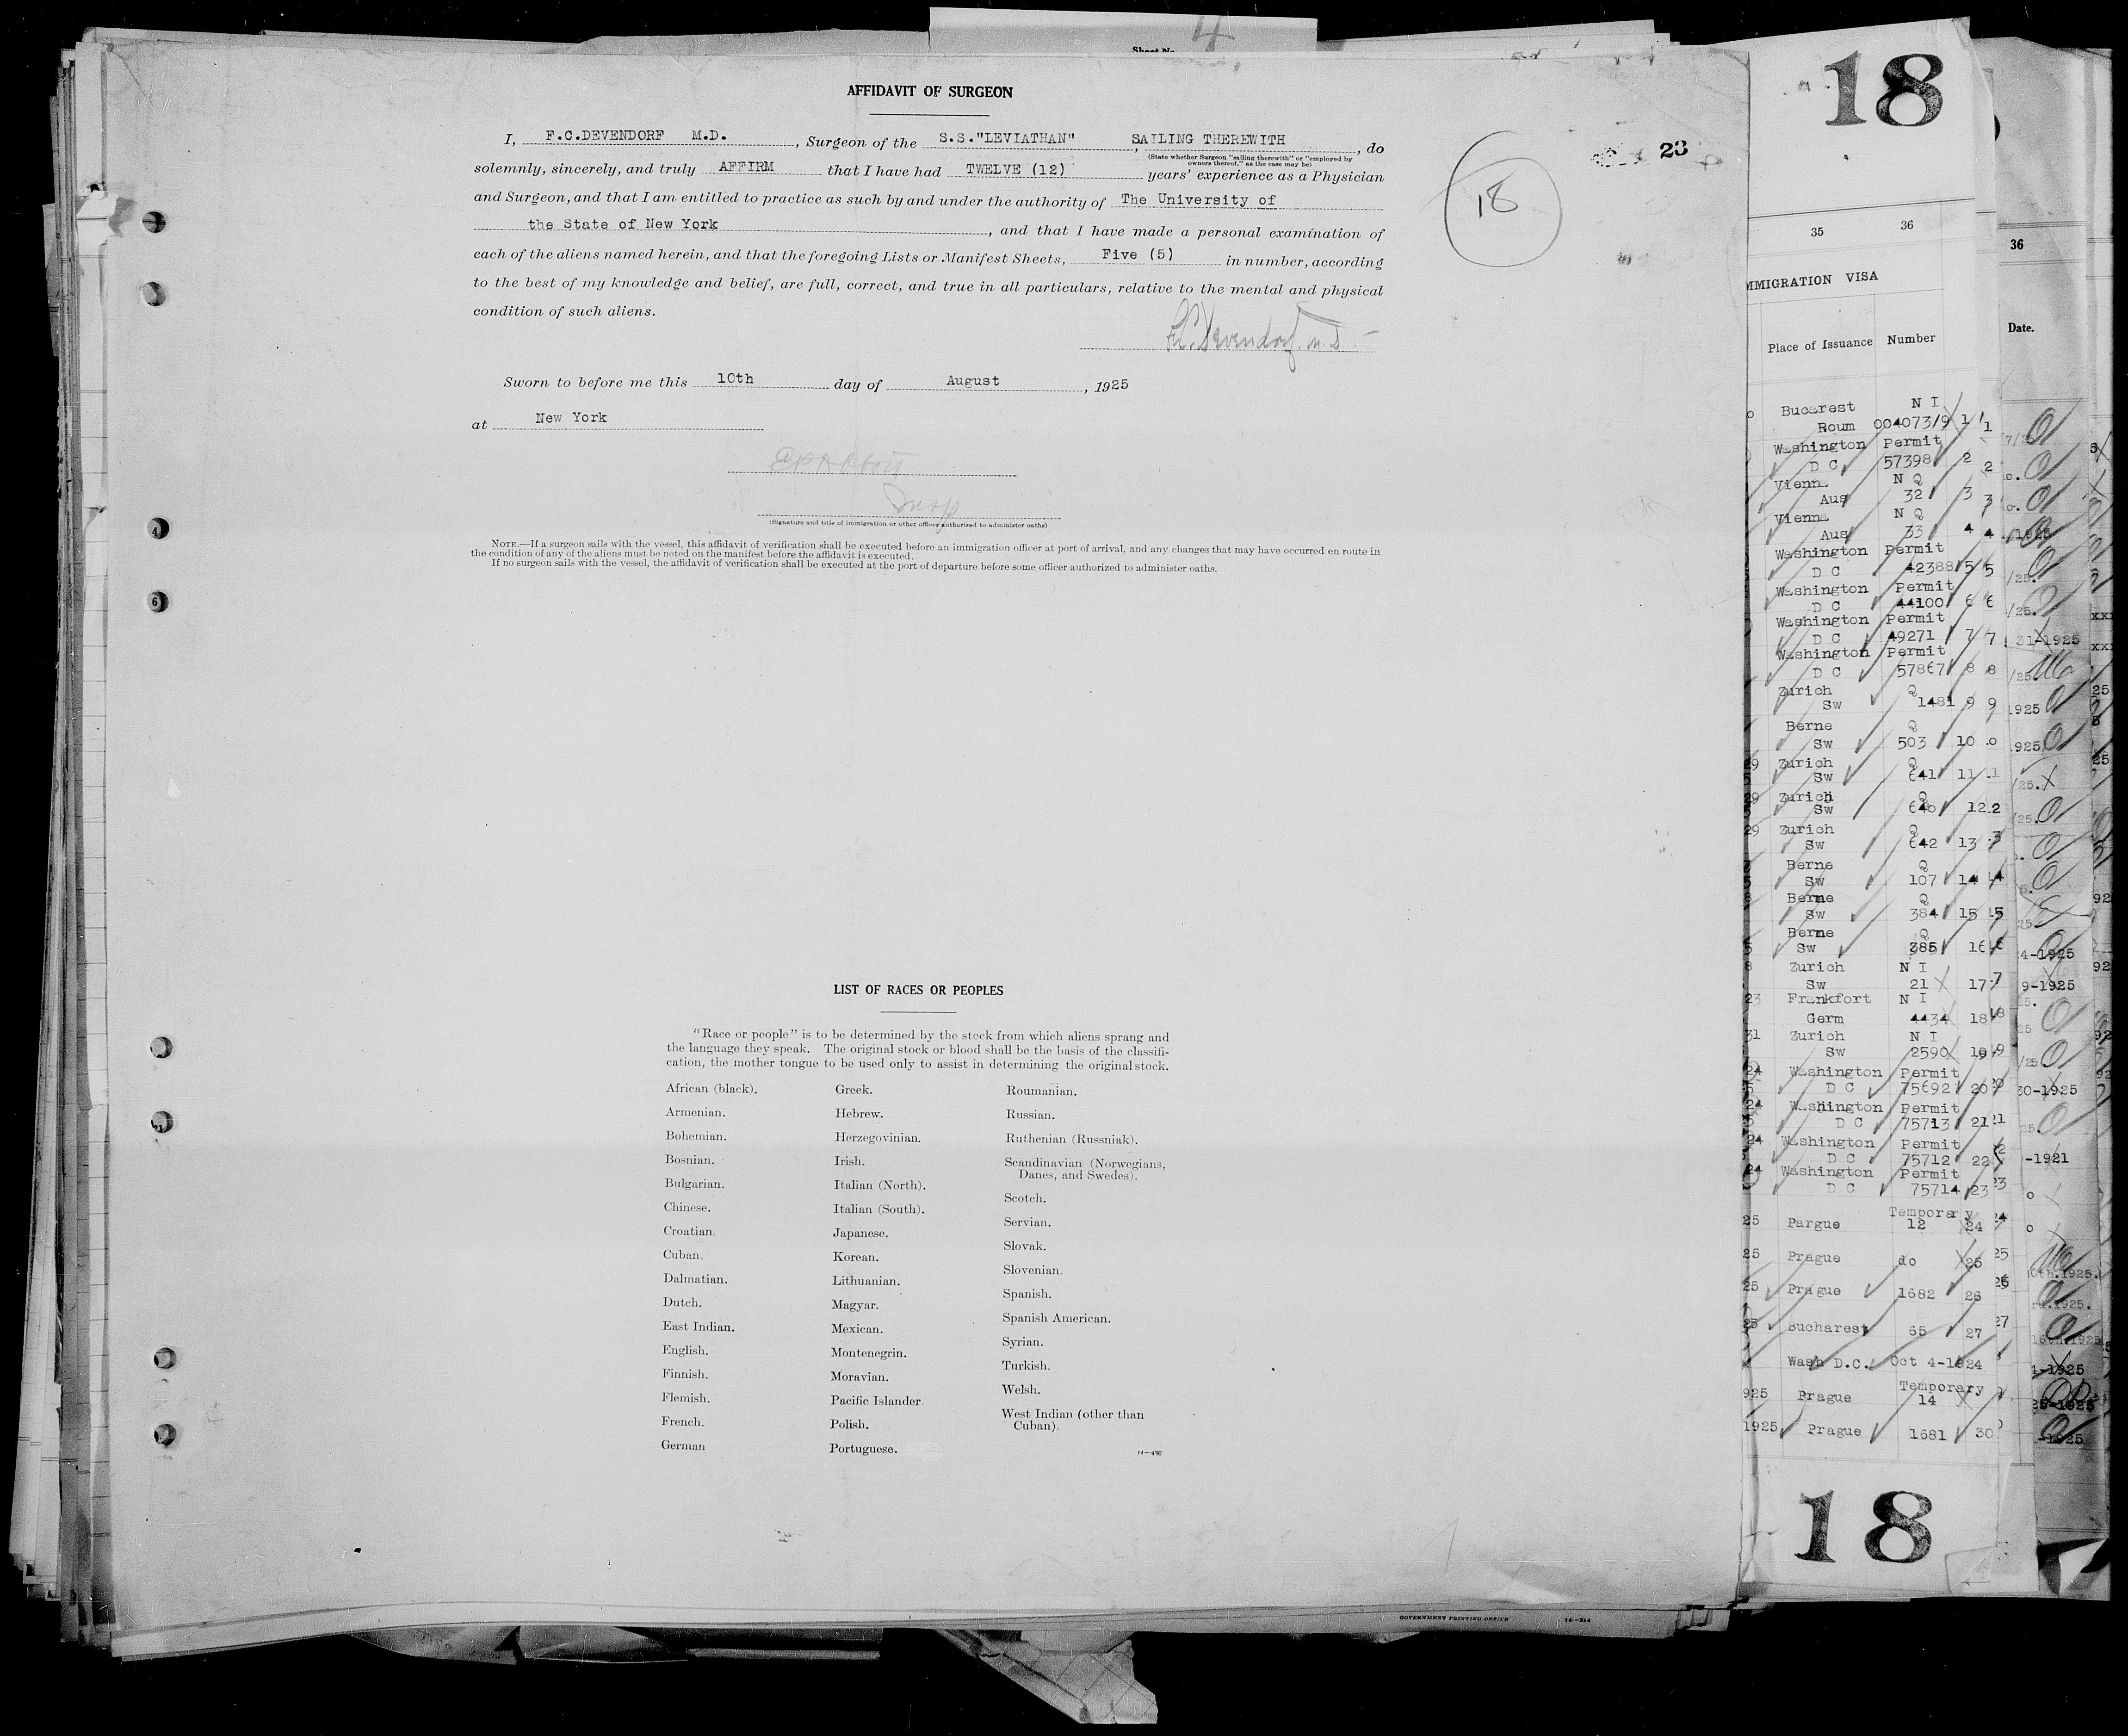 Sheet No.
4
AFFIDAVIT OF SURGEON
I, F.C.DEVENDORF M.D. , Surgeon of the S.S."LEVIATHAN" , SAILING THEREWITH , do
(State whether Surgeon "sailing therewith" or "employed by
owners thereof," as the case may be)
solemnly, sincerely, and truly AFFIRM that I have had TWELVE (12) years' experience as a Physician
and Surgeon, and that I am entitled to practice as such by and under the authority of The University of
the State of New York , and that I have made a personal examination of
each of the aliens named herein, and that the foregoing Lists or Manifest Sheets, Five (5) in number, according
to the best of my knowledge and belief, are full, correct, and true in all particulars, relative to the mental and physical
condition of such aliens.
F.C. Devendorf. M.D.
Sworn to before me this 10th day of August , 1925
at New York
Insp
(Signature and title of immigration or other officer authorized to administer oaths)
NOTE.—If a surgeon sails with the vessel, this affidavit of verification shall be executed before an immigration officer at port of arrival, and any changes that may have occurred en route in
the condition of any of the aliens must be noted on the manifest before the affidavit is executed.
If no surgeon sails with the vessel, the affidavit of verification shall be executed at the port of departure before some officer authorized to administer oaths.
18
23
4
6
LIST OF RACES OR PEOPLES
"Race or people" is to be determined by the stock from which aliens sprang and
the language they speak. The original stock or blood shall be the basis of the classifi-
cation, the mother tongue to be used only to assist in determining the original stock.
African (black).
Armenian.
Bohemian.
Bosnian.
Bulgarian.
Chinese.
Croatian.
Cuban.
Dalmatian.
Dutch.
East Indian.
English.
Finnish.
Flemish.
French.
German
Greek.
Hebrew.
Herzegovinian.
Irish.
Italian (North).
Italian (South).
Japanese.
Korean.
Lithuanian.
Magyar.
Mexican.
Montenegrin.
Moravian.
Pacific Islander.
Polish.
Portuguese.
Roumanian.
Russian.
Ruthenian (Russniak).
Scandinavian (Norwegians,
Danes, and Swedes).
Scotch.
Servian.
Slovak.
Slovenian.
Spanish.
Spanish American.
Syrian.
Turkish.
Welsh.
West Indian (other than
Cuban).
14—430
GOVERNMENT PRINTING OFFICE 14—214
18
35 36
IMMIGRATION VISA
Place of Issuance Number
Bucarest N I
Roum 004073/9 1 1
Washington Permit
D C 57398 2 2
Vienna N Q
Aus 32 3 3
Vienna N Q
Aus 33 4 4
Washington Permit
D C 42388 5 5
Washington Permit
D C 44100 6 6
Washington Permit
D C 49271 7 7
Washington Permit
D C 57867 8 8
Zurich Q
Sw 1481 9 9
Berne Q
Sw 503 10
Zurich Q
Sw 641 11
Zurich Q
Sw 640 12
Zurich Q
Sw 642 13
Berne Q
Sw 107 14
Berne Q
Sw 384 15
Berne Q
Sw 385 16
Zurich N I
Sw 21 17
Frankfort N I
Germ 4434 18
Zurich N I
Sw 2590 19
Washington Permit
D C 75692 20
Washington Permit
D C 75713 21
Washington Permit
D C 75712 22
Washington Permit
D C 75714 23
Temporary
Pargue 12 24
Prague do 25
Prague 1682 26
Bucharest 65 27
Wash D.C. Oct 4-1924
Temporary
Prague 14
Prague 1681 30
18
36
Date.